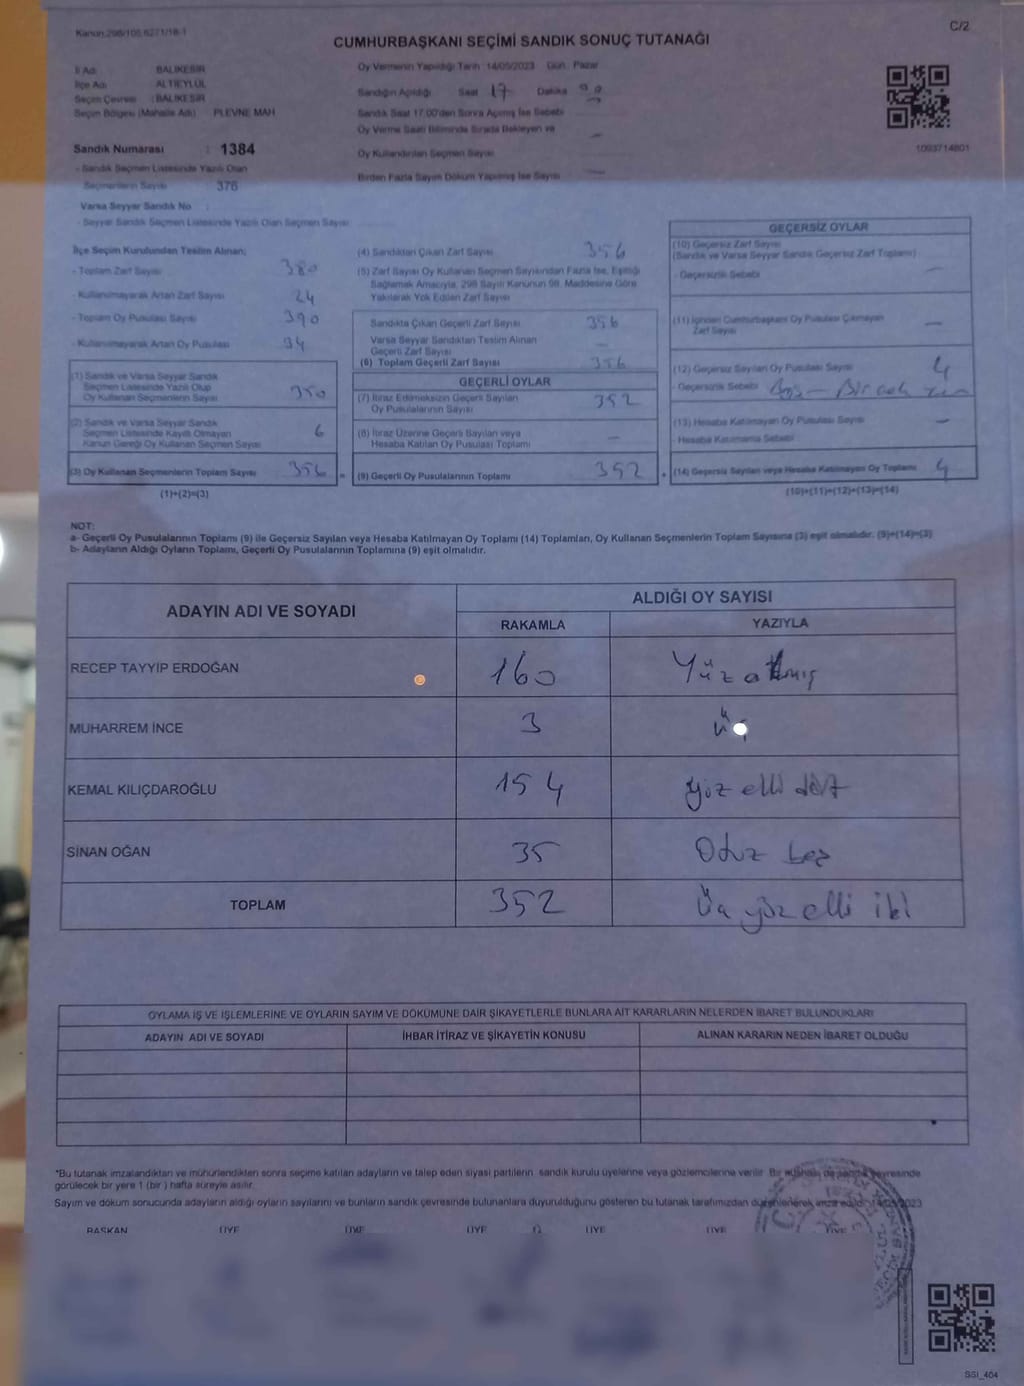 Kanun:298/105,6271/18-1
C/2
CUMHURBAŞKANI SEÇİMİ SANDIK SONUÇ TUTANAĞI
İl Adı BALIKESİR
İlçe Adı ALTIEYLÜL
Seçim Çevresi : BALIKESİR
Seçim Bölgesi (Mahalle Adı) PLEVNE MAH
Sandık Numarası : 1384
- Sandık Seçmen Listesinde Yazılı Olan
Seçmenlerin Sayısı 376
Varsa Seyyar Sandık No
- Seyyar Sandık Seçmen Listesinde Yazılı Olan Seçmen Sayısı
Oy Vermenin Yapıldığı Tarih : 14/05/2023 Gün : Pazar
Sandığın Açıldığı Saat 17 Dakika
Sandık Saat 17.00'den Sonra Açılmış İse Sebebi
Oy Verme Saati Bitiminde Sırada Bekleyen ve
Oy Kullandırılan Seçmen Sayısı
Birden Fazla Sayım Döküm Yapılmış İse Sayısı
1093714801
İlçe Seçim Kurulundan Teslim Alınan;
- Toplam Zarf Sayısı 380
- Kullanılmayarak Artan Zarf Sayısı 24
- Toplam Oy Pusulası Sayısı 390
- Kullanılmayarak Artan Oy Pusulası 34
(1) Sandık ve Varsa Seyyar Sandık
Seçmen Listesinde Yazılı Olup
Oy Kullanan Seçmenlerin Sayısı 350
(2) Sandık ve Varsa Seyyar Sandık
Seçmen Listesinde Kayıtlı Olmayan
Kanun Gereği Oy Kullanan Seçmen Sayısı 6
(3) Oy Kullanan Seçmenlerin Toplam Sayısı 356 =
(1)+(2)=(3)
(4) Sandıktan Çıkan Zarf Sayısı 356
(5) Zarf Sayısı Oy Kullanan Seçmen Sayısından Fazla İse, Eşitliği
Sağlamak Amacıyla, 298 Sayılı Kanunun 98. Maddesine Göre
Yakılarak Yok Edilen Zarf Sayısı
Sandıkta Çıkan Geçerli Zarf Sayısı 356
Varsa Seyyar Sandıktan Teslim Alınan
Geçerli Zarf Sayısı —
(6) Toplam Geçerli Zarf Sayısı 356
GEÇERLİ OYLAR
(7) İtiraz Edilmeksizin Geçerli Sayılan
Oy Pusulalarının Sayısı 352
(8) İtiraz Üzerine Geçerli Sayılan veya
Hesaba Katılan Oy Pusulası Toplamı —
(9) Geçerli Oy Pusulalarının Toplamı 352 +
GEÇERSİZ OYLAR
(10) Geçersiz Zarf Sayısı
(Sandık ve Varsa Seyyar Sandık Geçersiz Zarf Toplamı) —
- Geçersizlik Sebebi
(11) İçinden Cumhurbaşkanı Oy Pusulası Çıkmayan
Zarf Sayısı —
(12) Geçersiz Sayılan Oy Pusulası Sayısı 4
- Geçersizlik Sebebi
(13) Hesaba Katılmayan Oy Pusulası Sayısı —
- Hesaba Katılmama Sebebi
(14) Geçersiz Sayılan veya Hesaba Katılmayan Oy Toplamı 4
(10)+(11)+(12)+(13)=(14)
NOT:
a- Geçerli Oy Pusulalarının Toplamı (9) ile Geçersiz Sayılan veya Hesaba Katılmayan Oy Toplamı (14) Toplamları, Oy Kullanan Seçmenlerin Toplam Sayısına (3) eşit olmalıdır. (9)+(14)=(3)
b- Adayların Aldığı Oyların Toplamı, Geçerli Oy Pusulalarının Toplamına (9) eşit olmalıdır.
ADAYIN ADI VE SOYADI
ALDIĞI OY SAYISI
RAKAMLA YAZIYLA
RECEP TAYYİP ERDOĞAN 160 Yüz atmış
MUHARREM İNCE 3 üç
KEMAL KILIÇDAROĞLU 154 yüz elli dört
SİNAN OĞAN 35 Otuz beş
TOPLAM 352 Üç yüz elli iki
OYLAMA İŞ VE İŞLEMLERİNE VE OYLARIN SAYIM VE DÖKÜMÜNE DAİR ŞİKAYETLERLE BUNLARA AİT KARARLARIN NELERDEN İBARET BULUNDUKLARI
ADAYIN ADI VE SOYADI İHBAR İTİRAZ VE ŞİKAYETİN KONUSU ALINAN KARARIN NEDEN İBARET OLDUĞU
*Bu tutanak imzalandıktan ve mühürlendikten sonra seçime katılan adayların ve talep eden siyasi partilerin, sandık kurulu üyelerine veya gözlemcilerine verilir. Bir nüshası da sandık çevresinde
görülecek bir yere 1 (bir ) hafta süreyle asılır.
Sayım ve döküm sonucunda adayların aldığı oyların sayılarını ve bunların sandık çevresinde bulunanlara duyurulduğunu gösteren bu tutanak tarafımızdan düzenlenerek imza edildi.
BAŞKAN ÜYE ÜYE ÜYE ÜYE ÜYE ÜYE
SSI_404